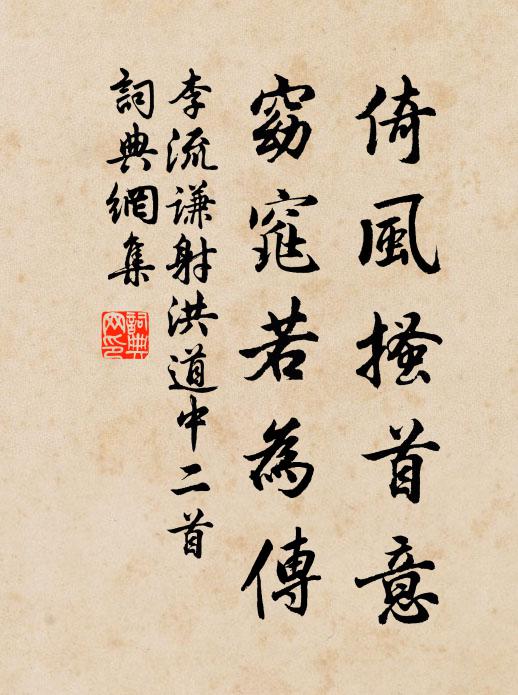 倚風搔首意
窈窕若為傳
李流謙射洪道中二首
詞典網集
詞典
网印